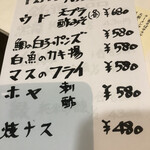 ウド 天プラ 酢みそ ¥680
鯛の白子ポンズ ¥580
白魚のカキ揚 ¥580
マスのフライ ¥580
ホヤ 刺 酢 ¥580
焼ナス ¥480